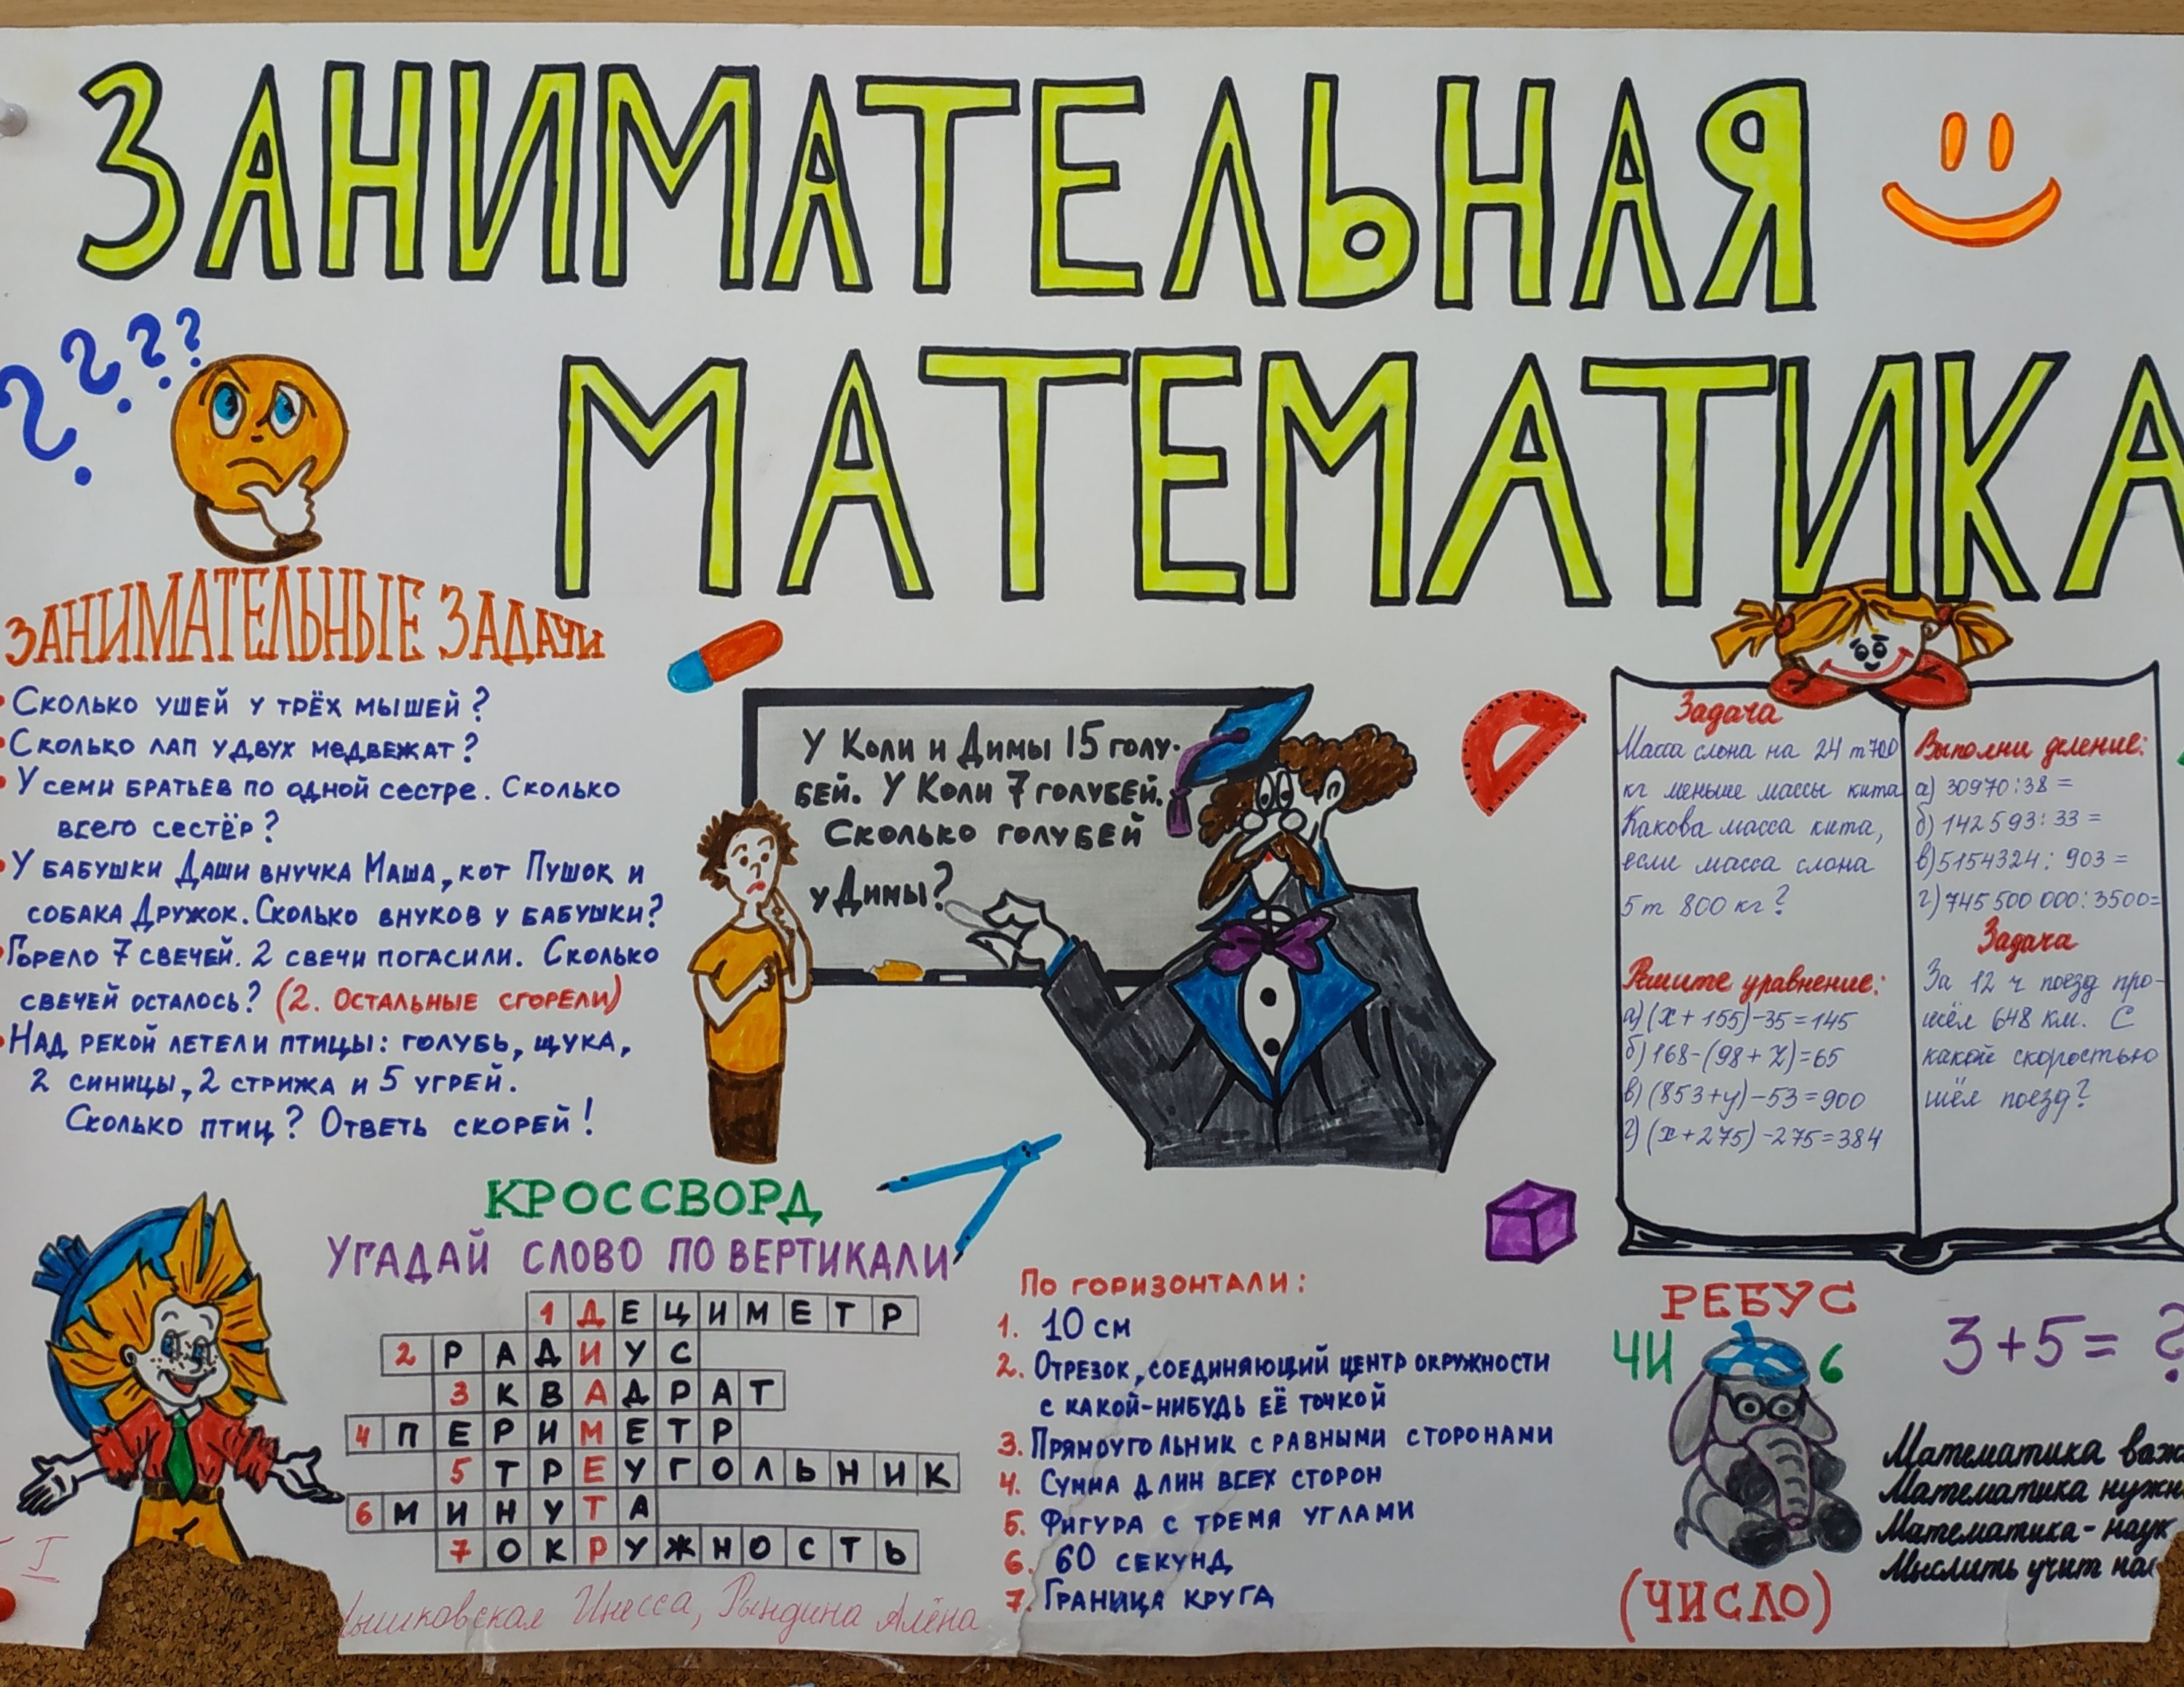 ЗАНИМАТЕЛЬНАЯ
МАТЕМАТИКА
? ? ? ?
ЗАНИМАТЕЛЬНЫЕ ЗАДАЧИ
• Сколько ушей у трёх мышей?
• Сколько лап у двух медвежат?
• У семи братьев по одной сестре. Сколько
всего сестёр?
• У бабушки Даши внучка Маша, кот Пушок и
собака Дружок. Сколько внуков у бабушки?
• Горело 7 свечей. 2 свечи погасили. Сколько
свечей осталось? (2. Остальные сгорели)
• Над рекой летели птицы: голубь, щука,
2 синицы, 2 стрижа и 5 угрей.
Сколько птиц? Ответь скорей!
У Коли и Димы 15 голу-
бей. У Коли 7 голубей.
Сколько голубей
у Димы?
Задача
Масса слона на 24 т 700
кг меньше массы кита
Какова масса кита,
если масса слона
5 т 800 кг?
Решите уравнение:
а) (x + 155) - 35 = 145
б) 168 - (98 + z) = 65
в) (853 + y) - 53 = 900
г) (x + 275) - 275 = 384
Выполни деление:
а) 30970 : 38 =
б) 142593 : 33 =
в) 5154324 : 903 =
г) 745 500 000 : 3500 =
Задача
За 12 ч поезд про-
шёл 648 км. С
какой скоростью
шёл поезд?
КРОССВОРД
УГАДАЙ СЛОВО ПО ВЕРТИКАЛИ
1 ДЕЦИМЕТР
2 РАДИУС
3 КВАДРАТ
4 ПЕРИМЕТР
5 ТРЕУГОЛЬНИК
6 МИНУТА
7 ОКРУЖНОСТЬ
По горизонтали:
1. 10 см
2. Отрезок, соединяющий центр окружности
с какой-нибудь её точкой
3. Прямоугольник с равными сторонами
4. Сумма длин всех сторон
5. Фигура с тремя углами
6. 60 секунд
7. Граница круга
РЕБУС
ЧИ 6
(ЧИСЛО)
3+5= ?
Математика
Математика
Математика - наук
Мыслить учит нас
Инесса, Рындина Алёна